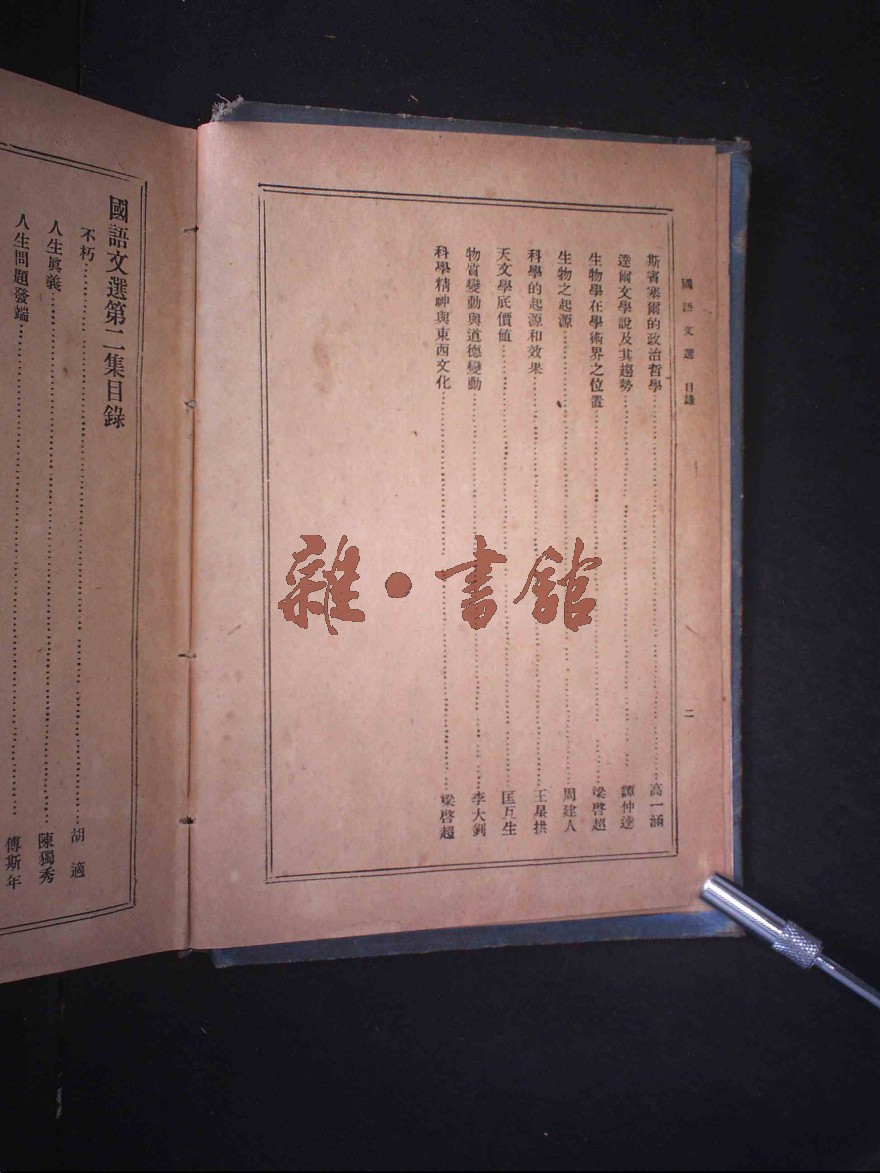 國語文選 目錄
二
斯賓塞爾的政治哲學……高一涵
達爾文學說及其趨勢……譚仲逵
生物學在學術界之位置……梁啓超
生物之起源……周建人
科學的起源和效果……王星拱
天文學底價値……匡互生
物質變動與道德變動……李大釗
科學精神與東西文化……梁啓超
國語文選第二集目錄
不朽……胡適
人生眞義……陳獨秀
人生問題發端……傅斯年
雜·書館